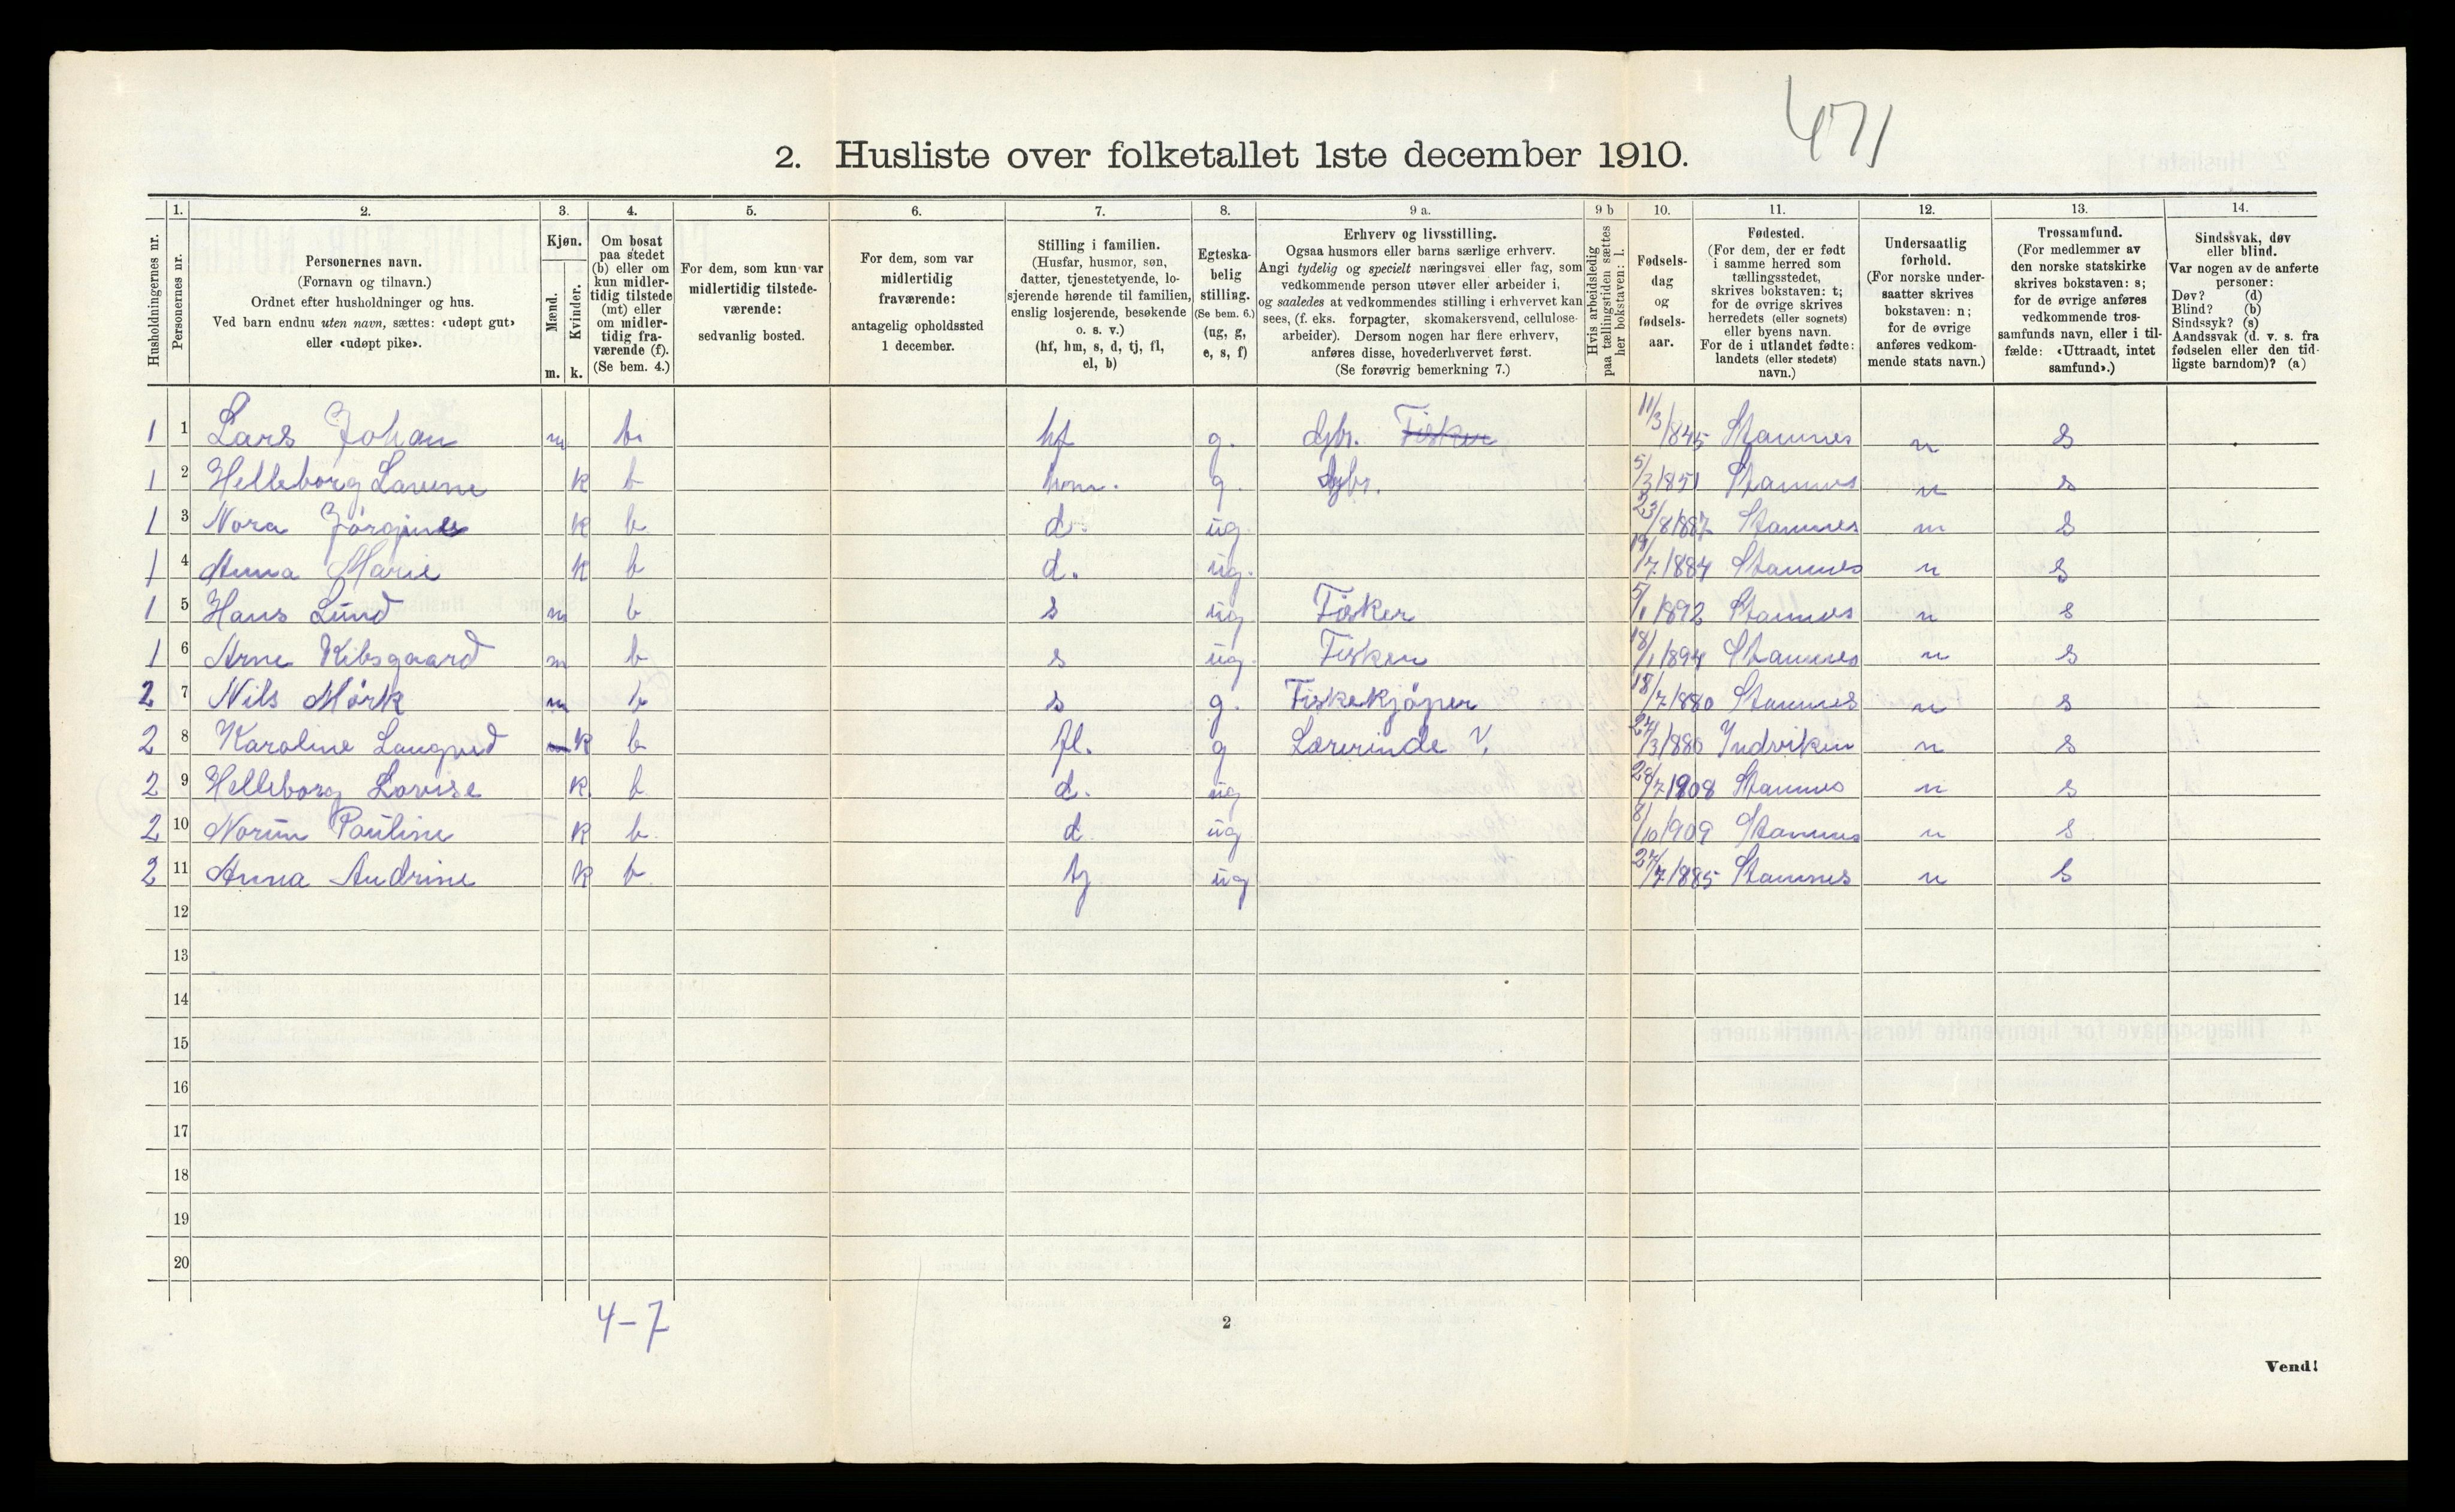 471
2. Husliste over folketallet 1ste december 1910.
Husholdningernes nr.
1. Personernes nr.
2.
Personernes navn.
(Fornavn og tilnavn.)
Ordnet efter husholdninger og hus.
Ved barn endnu uten navn, sættes: «udøpt gut»
eller «udøpt pike».
3.
Kjøn.
Mænd. Kvinder.
m. k.
4.
Om bosat
paa stedet
(b) eller om
kun midler-
tidig tilstede
(mt) eller
om midler-
tidig fra-
værende (f).
(Se bem. 4.)
5.
For dem, som kun var
midlertidig tilstede-
værende:
sedvanlig bosted.
6.
For dem, som var
midlertidig
fraværende:
antagelig opholdssted
1 december.
7.
Stilling i familien.
(Husfar, husmor, søn,
datter, tjenestetyende, lo-
sjerende hørende til familien,
enslig losjerende, besøkende
o. s. v.)
(hf, hm, s, d, tj, fl,
el, b)
8.
Egteska-
belig
stilling.
(Se bem. 6.)
(ug, g,
e, s, f)
9 a.
Erhverv og livsstilling.
Ogsaa husmors eller barns særlige erhverv.
Angi tydelig og specielt næringsvei eller fag, som
vedkommende person utøver eller arbeider i,
og saaledes at vedkommendes stilling i erhvervet kan
sees, (f. eks. forpagter, skomakersvend, cellulose-
arbeider). Dersom nogen har flere erhverv,
anføres disse, hovederhvervet først.
(Se forøvrig bemerkning 7.)
9 b
Hvis arbeidsledig
paa tællingstiden sættes
her bokstaven: l.
10.
Fødsels-
dag
og
fødsels-
aar.
11.
Fødested.
(For dem, der er født
i samme herred som
tællingsstedet,
skrives bokstaven: t;
for de øvrige skrives
herredets (eller sognets)
eller byens navn.
For de i utlandet fødte:
landets (eller stedets)
navn.)
12.
Undersaatlig
forhold.
(For norske under-
saatter skrives
bokstaven: n;
for de øvrige
anføres vedkom-
mende stats navn.)
13.
Trossamfund.
(For medlemmer av
den norske statskirke
skrives bokstaven: s;
for de øvrige anføres
vedkommende tros-
samfunds navn, eller i til-
fælde: «Uttraadt, intet
samfund».)
14.
Sindssvak, døv
eller blind.
Var nogen av de anførte
personer:
Døv? (d)
Blind? (b)
Sindssyk? (s)
Aandssvak (d. v. s. fra
fødselen eller den tid-
ligste barndom)? (a)
1 1 Lars Johan m b hf g. Gbr. Fisker 11/3/845 Stamnes n s
1 2 Helleborg Lavine k b hm. g. Gbr. 5/3/851 Stamnes n s
1 3 Nora Jörgine k b d. ug. 23/8/887 Stamnes n s
1 4 Anna Marie k b d. ug. 19/7/884 Stamnes n s
1 5 Hans Lund m b s ug Fisker 5/1/892 Stamnes n s
1 6 Arne Kibsgaard m b s ug. Fisker 18/1/894 Stamnes n s
2 7 Nils Mörk m b s g. Fiskekjöper 18/7/880 Stamnes n s
2 8 Karoline Langved k b fl. g Lærerinde V. 27/3/880 Indviken n s
2 9 Helleborg Lovise k. b d. ug 28/7/1908 Stamnes n s
2 10 Norun Pauline k b. d. ug 8/10/909 Stamnes n s
2 11 Anna Andrine k b tj ug 27/7/885 Stamnes n s
12
13
14
15
16
17
18
19
20
4-7
2
Vend!